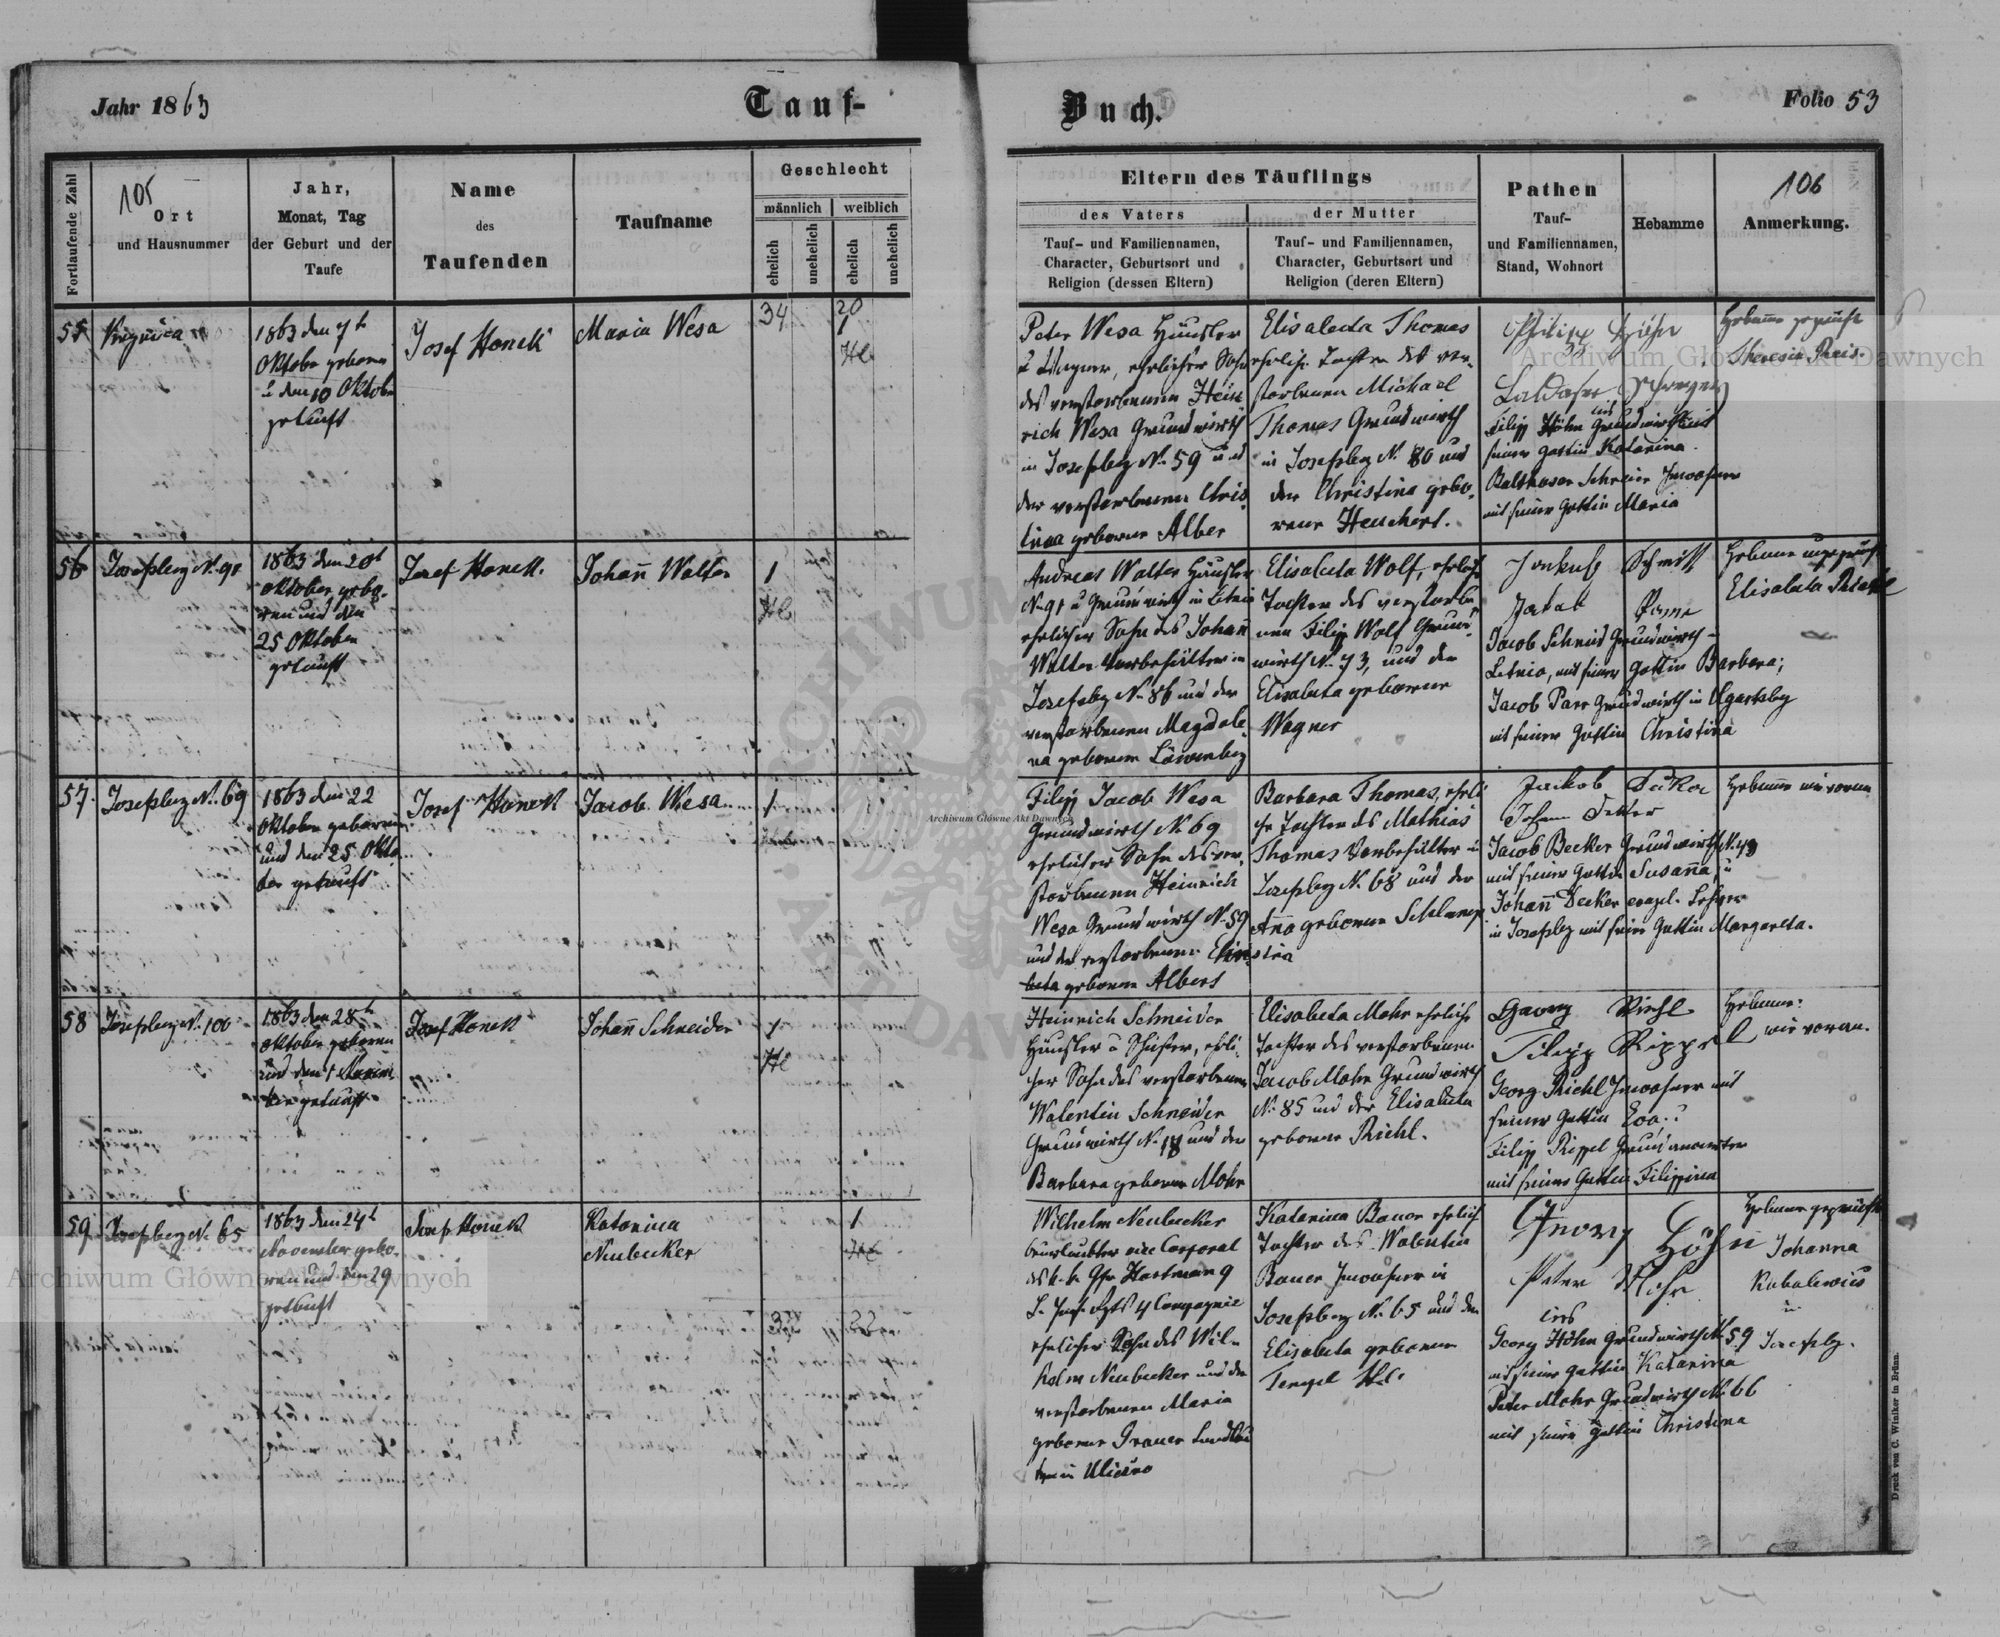 Jahr 1863
Tauf-
Buch.
Folio 53
Fortlaufende Zahl
105
Ort
und Hausnummer
Jahr,
Monat, Tag
der Geburt und der
Taufe
Name
des
Taufenden
Taufname
Geschlecht
männlich
weiblich
ehelich
unehelich
ehelich
unehelich
Eltern des Täuflings
des Vaters
Tauf- und Familiennamen,
Character, Geburtsort und
Religion (dessen Eltern)
der Mutter
Tauf- und Familiennamen,
Character, Geburtsort und
Religion (deren Eltern)
Pathen
Tauf-
und Familiennamen,
Stand, Wohnort
Hebamme
106
Anmerkung.
55
1863 den 7t
Oktober geboren
u den 10 Oktober
getauft
Josef Honek
Maria Wesa
34
20
1
Peter Wesa Häusler
u Wagner, ehelicher Sohn
des verstorbenen Hein
rich Wesa Grundwirth
in Josefsbg No 59 und
der verstorbenen Chris
tina geborne Alber
Elisabeta Thomas
eheliche Tochter des ver-
storbenen Michael
Thomas Grundwirth
in Josefsbg No 80 und
der Christina gebo-
rene Heuchert.
Philipp Höhn
Filipp Höhn Grundwirth mit
seiner Gattin Katarina.
Balthasar Schreier Inwohner
mit seiner Gattin Maria
Hebamme geprüft
Theresia Reis.
56
Josefsberg No 91
1863 den 20t
Oktober gebo-
ren und den
25 Oktober
getauft
Josef Honek.
Johann Walter
1
Andreas Walter Häusler
No 91 u Grundwirth in Letnia
ehelicher Sohn des Johann
Walter Vorbehälter in
Josefsbg No 86 und der
verstorbenen Magdale
na geborene Löwenberg
Elisabeta Wolf, eheliche
Tochter des verstorbe
nen Filipp Wolf Grund-
wirth No 73, und der
Elisabeta geborene
Wagner
Jakob Schmitt
Jacob Schmid Grundwirth
Letnia, mit seiner Gattin Barbara;
Jacob Parr Grundwirth in Ugartsbg
mit seiner Gattin Christina
Hebamme ungeprüft
Elisabeta
57
Josefsberg No 69
1863 den 22
Oktober geboren
und den 25 Okto
ber getauft
Josef Honek
Jacob Wesa
1
Filipp Jacob Wesa
Grundwirth No 69
ehelicher Sohn des ver-
storbenen Heinrich
Wesa Grundwirth No 59
und der verstorbenen Christina
geborene Albers
Barbara Thomas, eheli
che Tochter des Mathias
Thomas Vorbehälter in
Josefsbg No 68 und der
Anna geborene Schlamp
Johann Decker
Jacob Becker Grundwirth No 49
mit seiner Gattin Susanna, u
Johann Decker evangl. Lehrer
in Josefsbg mit seiner Gattin Margareta.
Hebamme wie voran
58
Josefsberg No 100
1863 den 28t
Oktober geboren
und den 1 Novem
ber getauft
Josef Honek
Johann Schneider
1
Heinrich Schneider
Häusler u Schuster, eheli-
cher Sohn des verstorbenen
Walentin Schneider
Grundwirth No 18 und der
Barbara geborene Mohr
Elisabeta Mohr eheliche
Tochter des verstorbenen
Jacob Mohr Grundwirth
No 85 und der Elisabeta
geborene Riehl.
Georg Riehl
Filipp Rippel
Georg Riehl Inwohner mit
seiner Gattin Eva. u
Filipp Rippel Grundwirth
mit seiner Gattin Filippina
Hebamme
wie voran.
59
Josefsberg No 65
1863 den 24t
November gebo-
ren und den 29
getauft
Josef Honek
Katarina
Neubecker
1
Wilhelm Neubecker
beurlaubter vice Corporal
des k. k. Gfr Hartmann 9
L. Inf. Rgts 4 Compagnie
ehelicher Sohn des Wil-
helm Neubecker und der
verstorbenen Maria
geborene Grauer
Katarina Bauer ehelich
Tochter des Walentin
Bauer Inwohner in
Josefsberg No 65 und der
Elisabeta geborene
Tempel
Georg Höhn
Peter Mohr
Georg Höhn Grundwirth No 59
mit seiner Gattin Katarina
Peter Mohr Grundwirth No 66
mit seiner Gattin Christina
Hebamme geprüft
Johanna
in
Josefsbg.
Druck von C. Winiker in Brünn.
Archiwum Główne Akt Dawnych
Archiwum Główne Akt Dawnych
Archiwum Główne Akt Dawnych